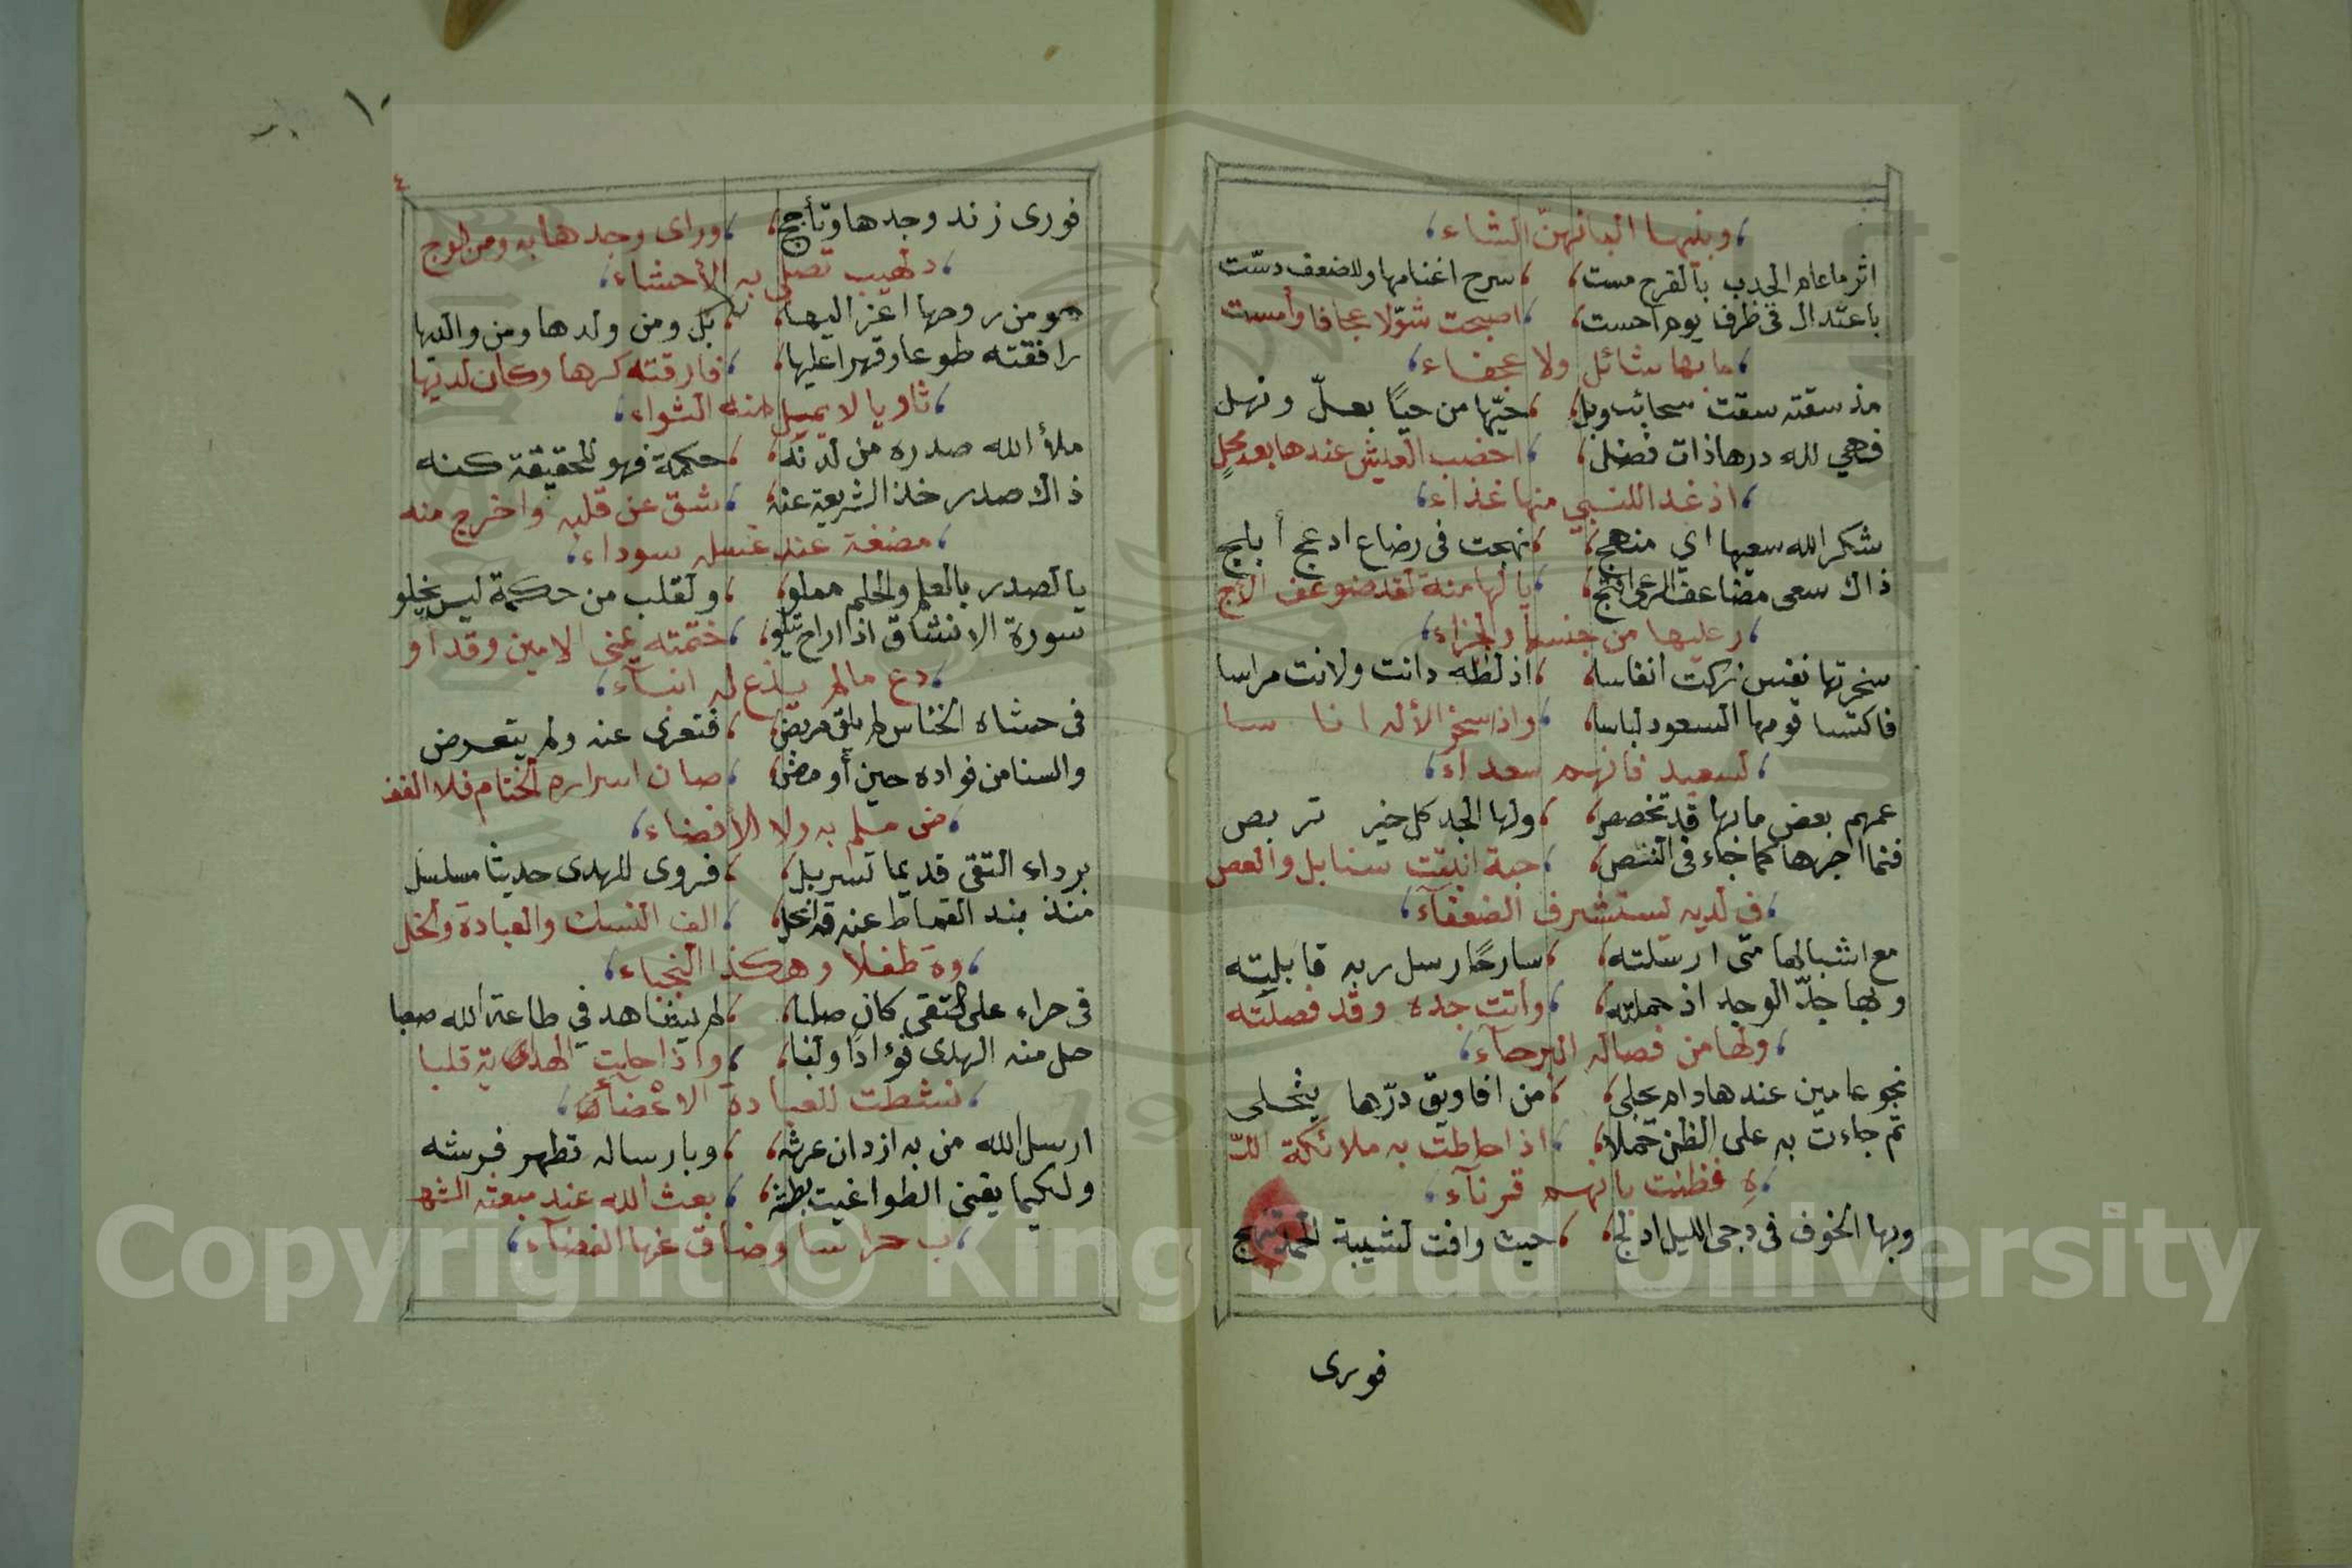 وبنيها البانهن الشاء
اثر ما عام الجدب بالقرح مست ، سرح اغنامها وللضعف دسّت
باعتدال في ظرف يوم احست ، اصبحت شوّلا عجافا وأمست
ما بها شائل ولا عجفاء
مذ سقته سقت سحائب وبل ، حيّها من حياً بعلّ ونهل
فهي لله درها ذات فضل ، اخضب العيش عندها بعد محلٍ
اذ غدا للنبي منها غذاء
شكر الله سعيها اي منهج ، نهجت في رضاع ادعج أبلج
ذاك سعى مضاعف ، يا لها منة لقد ضوعف الاج
ر عليها من جنسها والجزاء
سخرتها نفس زكت انفاسا ، اذ لطه دانت ولانت مراسا
فاكتسا قومها السعود لباسا ، واذا سخر الأله انا سا
لسعيد فانهم سعداء
عمهم بعض ما بها قد تخصص ، ولها الجد كل خير تربص
فنما اجرها كما جاء في النص ، حبة انبتت سنابل والعص
ف لديه يستشرف الضعفآء
مع اشبالها متى ارسلته ، سارحًا رسل ربه قابلته
وبها جدّ الوجد اذ حملته ، وأتت جده وقد فصلته
وبها من فصاله البرحآء
نحو عامين عندها دام يجلى ، من افاويق درّها يتحلى
ثم جاءت به على الظن حملا ، اذ احاطت به ملائكة اللّ
هِ فظنت بانهم قرنآء
وبها الخوف في دجى الليل ادلج ، حيث وافت لشيبة الحمد تنهج
فورى
١٠
٤
فورى زند وجدها وتأجج ، وراى وجدها به ومن الوج
د لهيب تصلى به الأحشاء
هو من روحها اعز اليها ، بل ومن ولدها ومن والديها
رافقته طوعا وقهرا عليها ، فارقته كرها وكان لديها
ثاويا لا يميل منه الثواء
ملأ الله صدره من لدنه ، حكمة فهو للحقيقة كنه
ذاك صدر خذ الشريعة عنه ، شق عن قلبه واخرج منه
مضغة عند غسله سوداء
يا لصدر بالعلم والحلم مملو ، ولقلب من حكمة ليس يخلو
سورة الانشقاق اذا راح تتلو ، ختمته يمنى الامين وقد او
دع ما لم يذع له انبآء
في حشاه الخناس لم يلق مربض ، فتعرى عنه ولم يتعرض
والسنا من فواده حين أومض ، صان اسراره الختام فلا الفض
ض ملم به ولا الأفضاء
برداء التقى قديما تسربل ، فروى للهدى حديثا مسلسل
منذ بند القماط عنه قد انحل ، الف النسك والعبادة والخل
وة طفلا وهكذا النجباء
في حراء على التقى كان صلبا ، لم يشاهد في طاعة الله صعبا
حل منه الهدى فؤادًا ولبا ، واذا حلت الهداية قلبا
نشطت للعبادة الاعضآء
ارسل الله من به ازدان عرشه ، وبارساله تطهر فرشه
ولكيما يفنى الطواغيت بطشه ، بعث الله عند مبعثه الشه
ب حراسا وضاق عنها الفضآء
Copyright © King Saud University